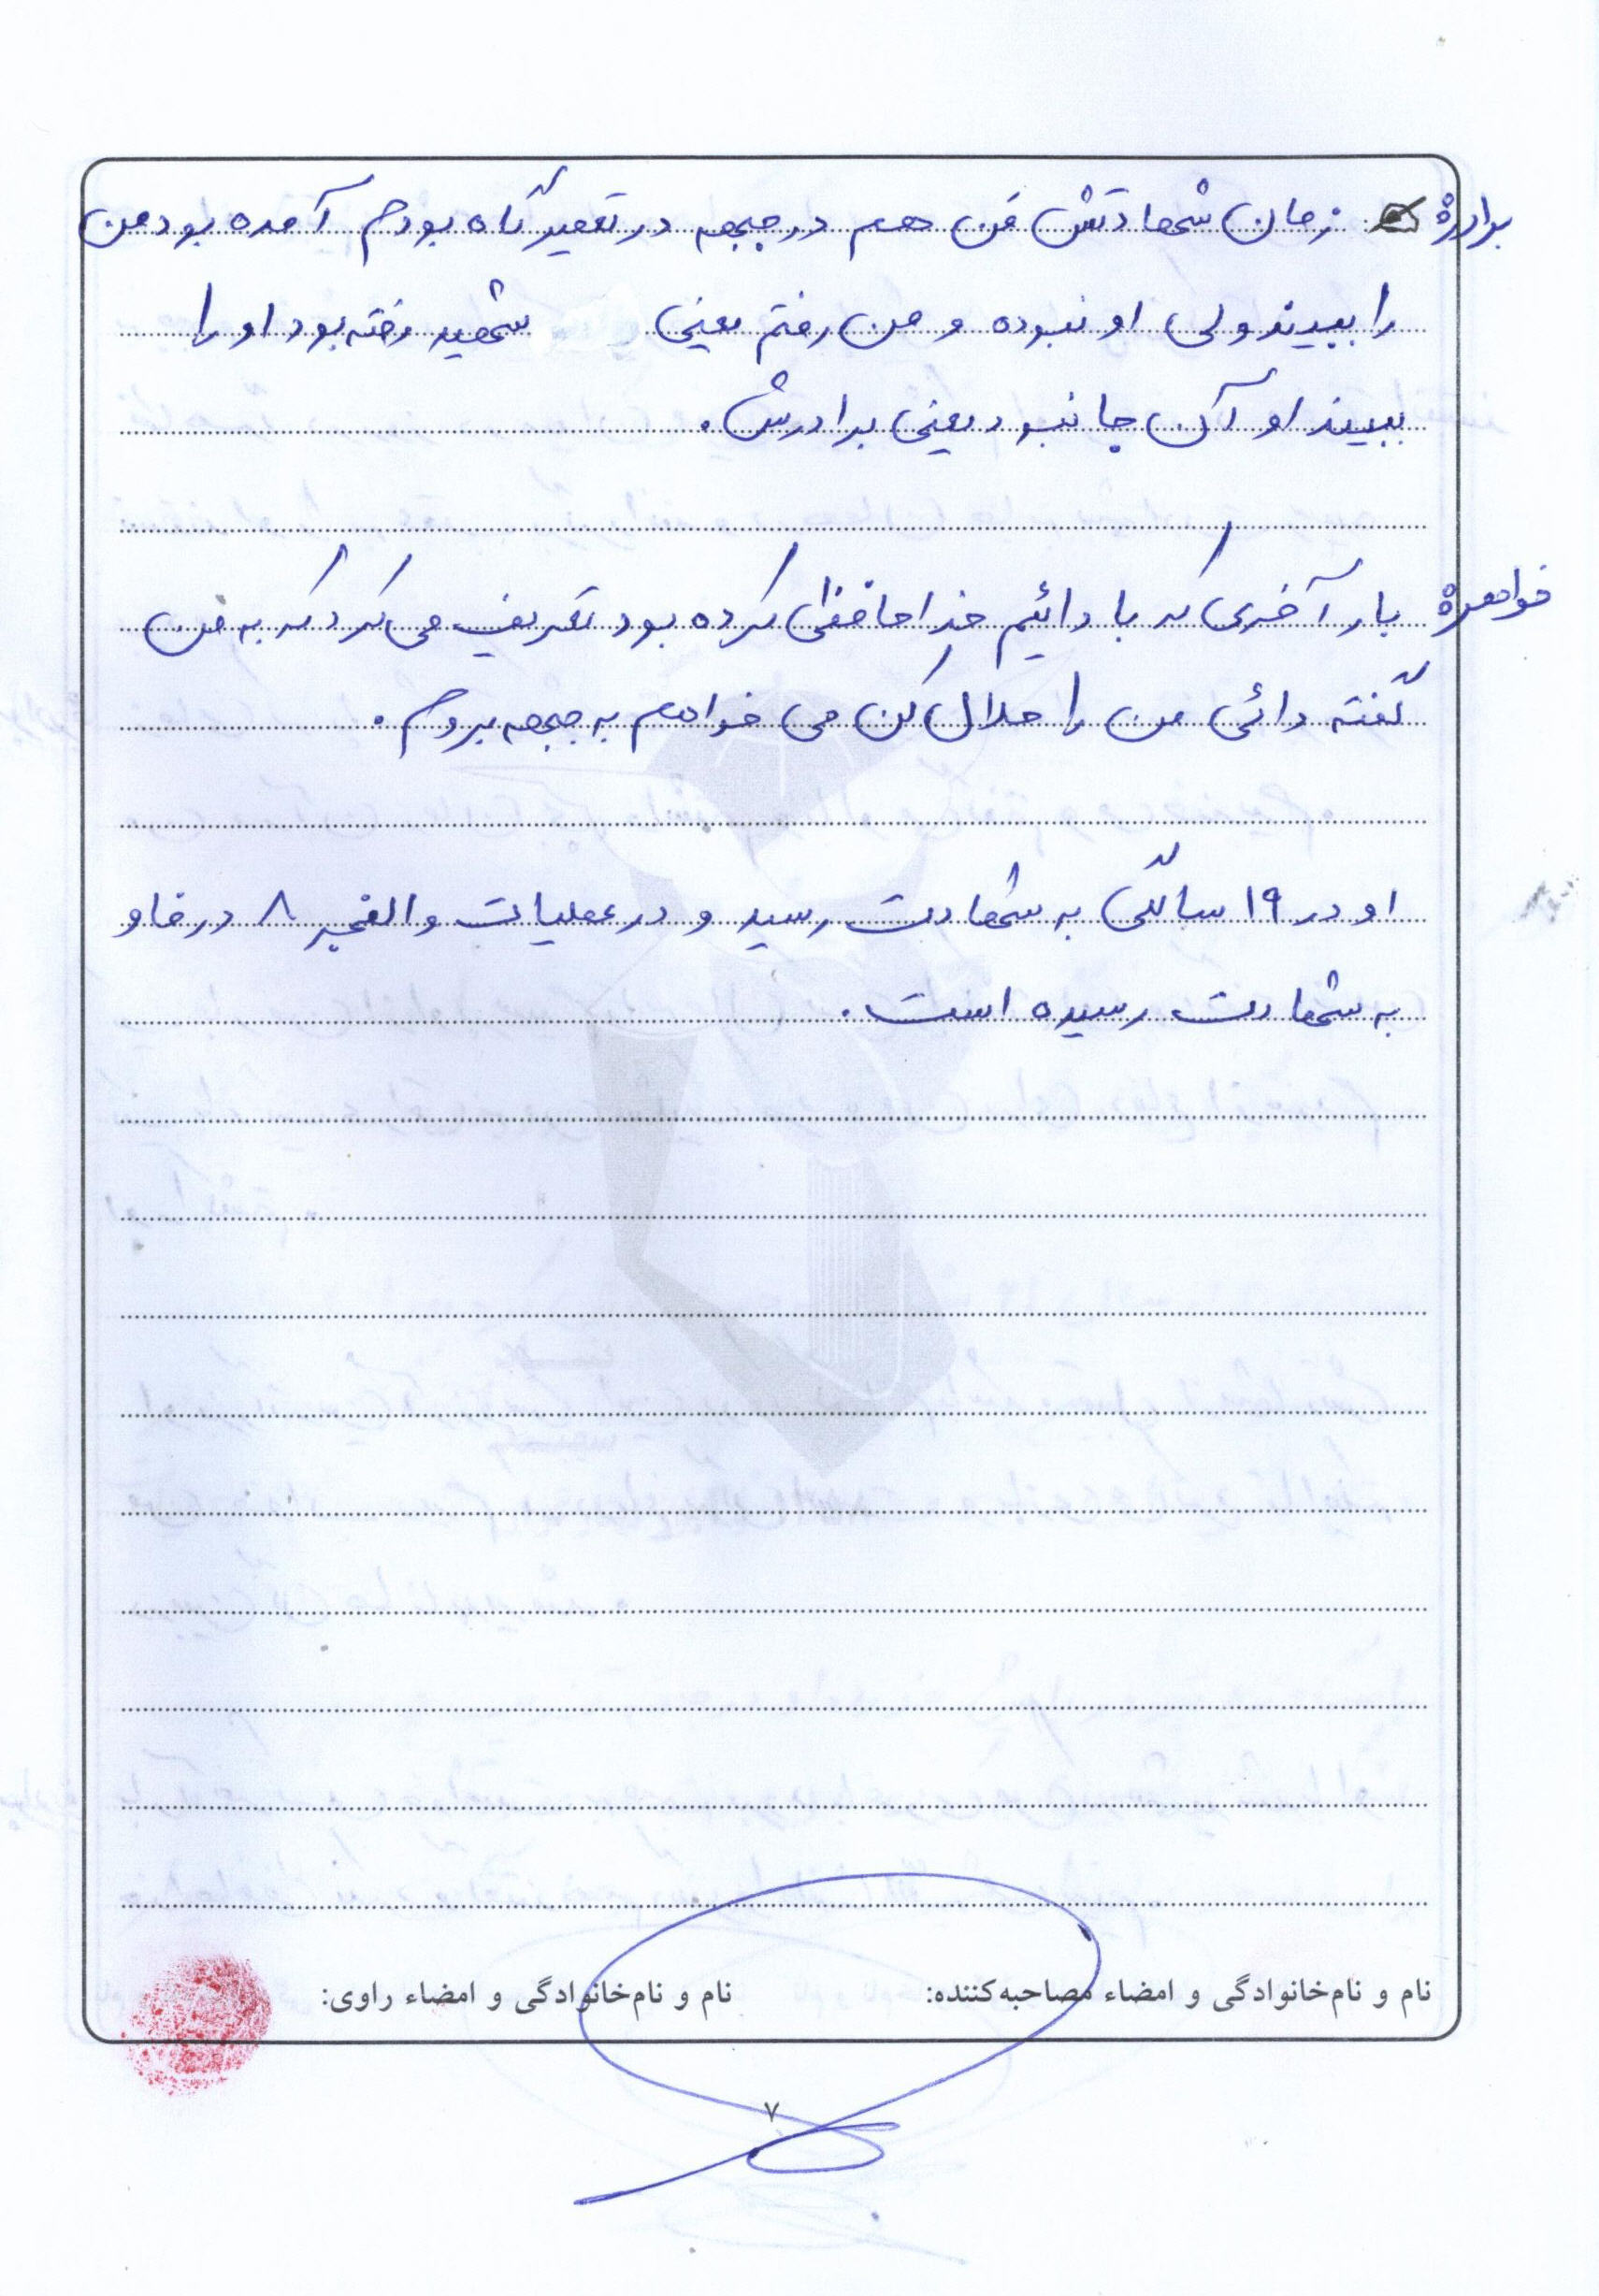 برادر: زمان شهادتش من هم در جبهه در تعمیرگاه بودم آمده بود من
را ببیند ولی او نبوده و من رفتم یعنی شهید رفته بود او را
ببیند او آن جا نبود یعنی برادرش.
خواهر: بار آخری که با دائیم خداحافظی کرده بود تعریف می کرد که به من
گفته دائی من را حلال کن می خواهم به جبهه بروم.
او در ۱۹ سالگی به شهادت رسید و در عملیات والفجر ۸ در فاو
به شهادت رسیده است.
نام و نام‌خانوادگی و امضاء مصاحبه‌کننده: نام و نام‌خانوادگی و امضاء راوی:
۷